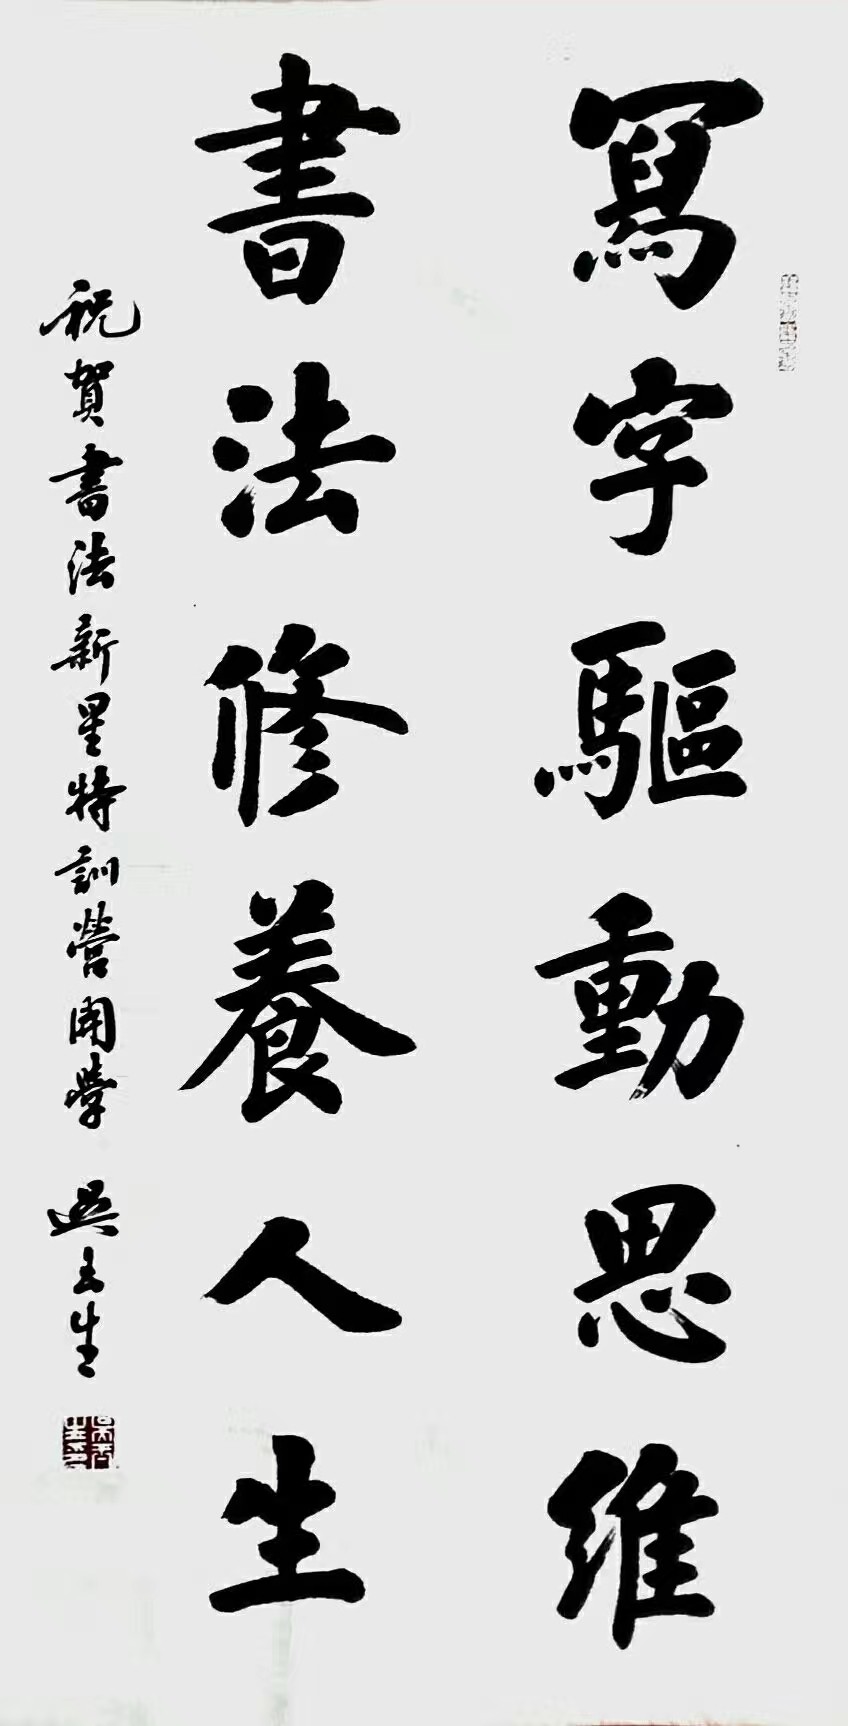 寫字驅動思維
書法修養人生
祝賀書法新星特訓營開學 吳玉生